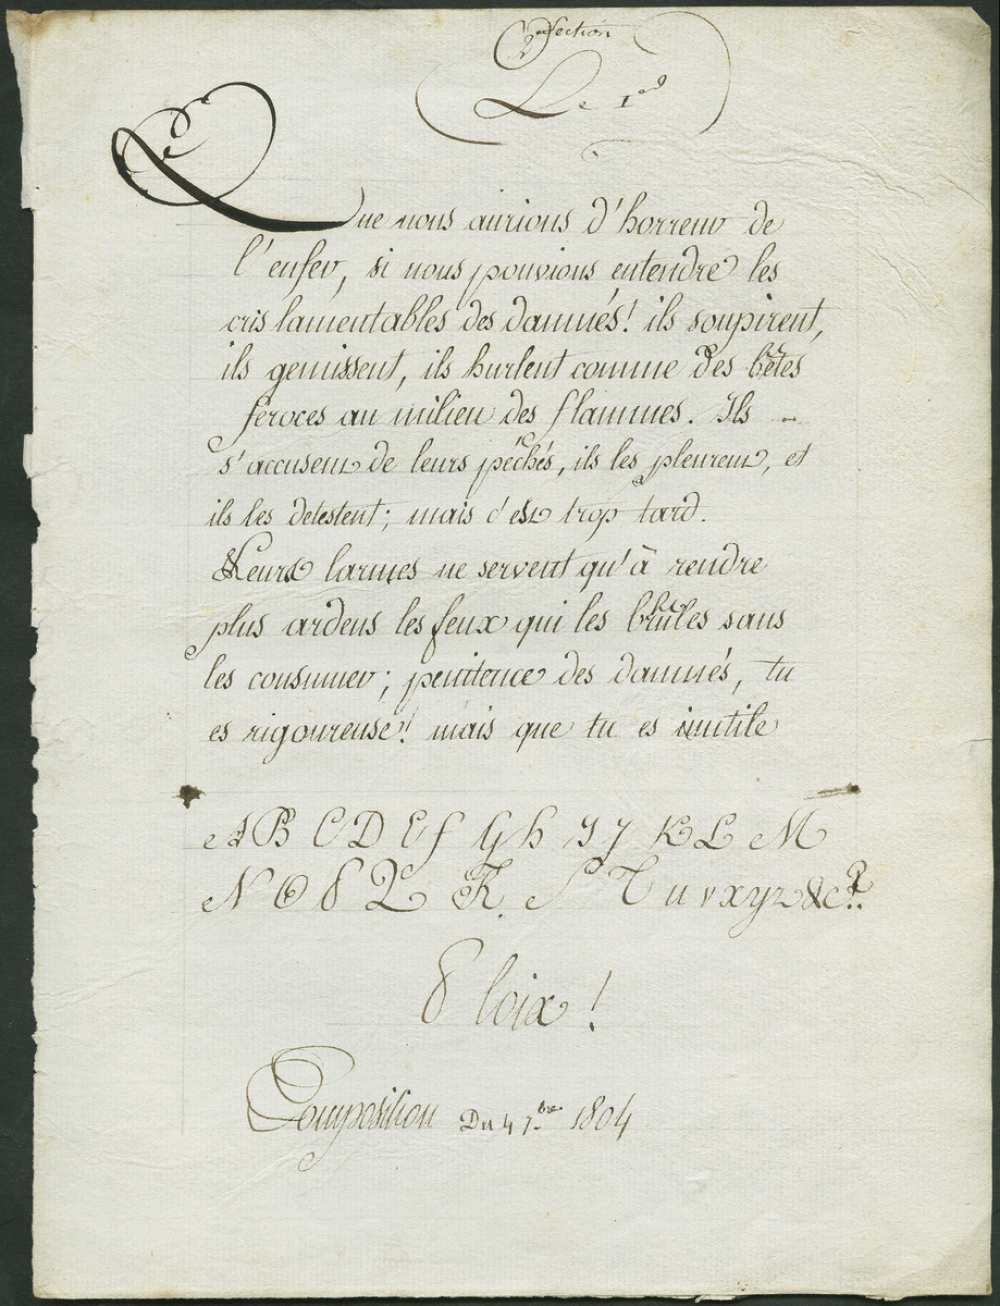 2 Section
Le 1er
Que nous aurions d'horreur de
l'enfer, si nous pouvions entendre les
cris lamentables des damnés! ils soupirent,
ils gemissent, ils hurlent comme des bêtes
féroces au milieu des flammes. Ils
s'accusent de leurs péchés, ils les pleurent, et
ils les detestent; mais c'est trop tard.
Leurs larmes ne servent qu'à rendre
plus ardens les feux qui les brûles sans
les consumer; penitence des damnés, tu
es rigoureuse! mais que tu es inutile
A B C D E f G h I J K L M
N O P Q R. S T u v x y z &c.
P loix!
Composition Du 4 7.bre 1804